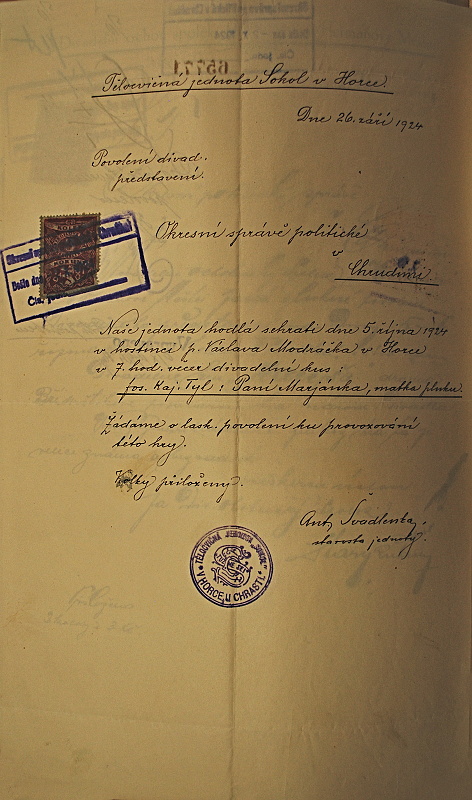 Tělocvičná jednota Sokol v Horce.
Dne 26. září 1924
Povolení divad.
představení.
Okresní správě politické
v
Chrudimi.
Naše jednota hodlá sehráti dne 5. října 1924
v hostinci p. Václava Modráčka v Horce
v 7. hod. večer divadelní kus:
Jos. Kaj. Tyl: Paní Marjánka, matka pluku.
Žádáme o lask. povolení ku provozování
této hry.
Kolky přiloženy.
Ant. Švadlenka,
starosta jednoty.
TĚLOCVIČNÁ JEDNOTA „SOKOL"
V HORCE U CHRASTI.
65771